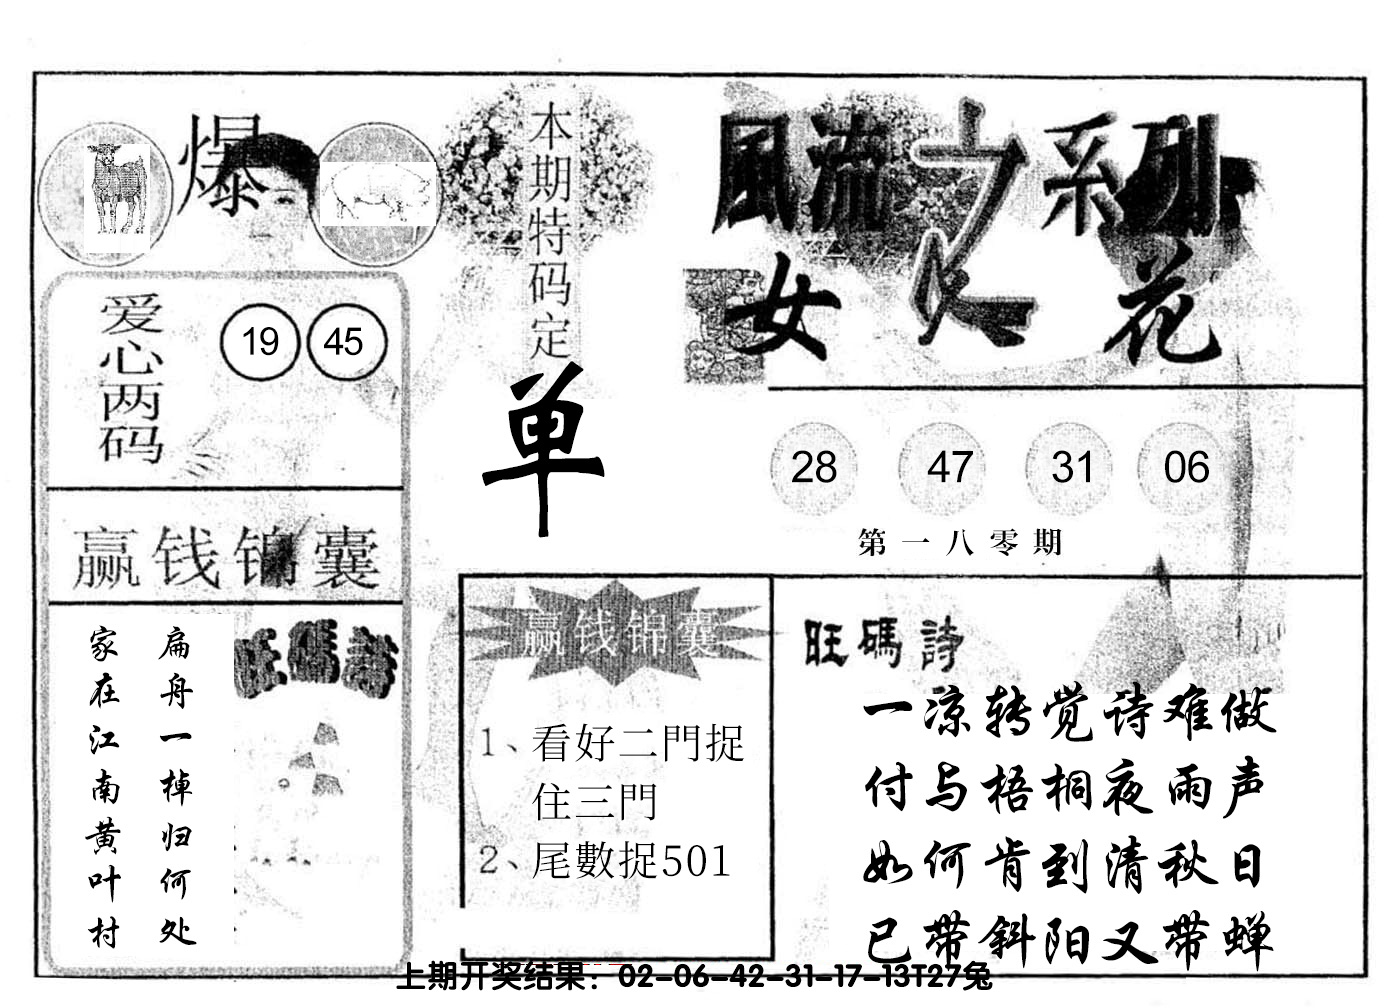 爆
本期特码定
单
風流之系列
女人花
爱心两码
19 45
28 47 31 06
第一八零期
赢钱锦囊
扁舟一棹归何处
家在江南黄叶村
旺碼詩
赢钱锦囊
1、看好二門捉
住三門
2、尾數捉501
旺碼詩
一凉转觉诗难做
付与梧桐夜雨声
如何肯到清秋日
已带斜阳又带蝉
上期开奖结果：02-06-42-31-17-13T27兔